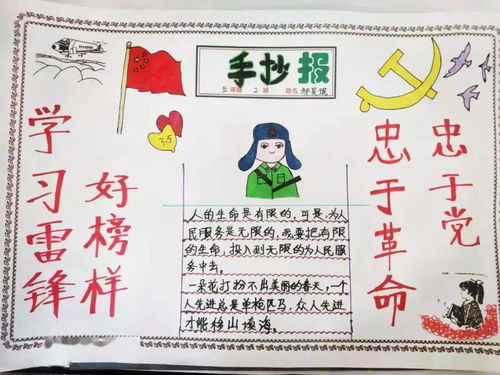 手抄报
五年级 2班 姓名
3.5
学习雷锋
好榜样
忠于革命
忠于党
人的生命是有限的,可是,为人
民服务是无限的,我要把有限
的生命,投入到无限的为人民服
务中去。
一朵花打扮不出美丽的春天,一个
人先进总是单枪匹马,众人先进
才能移山填海。